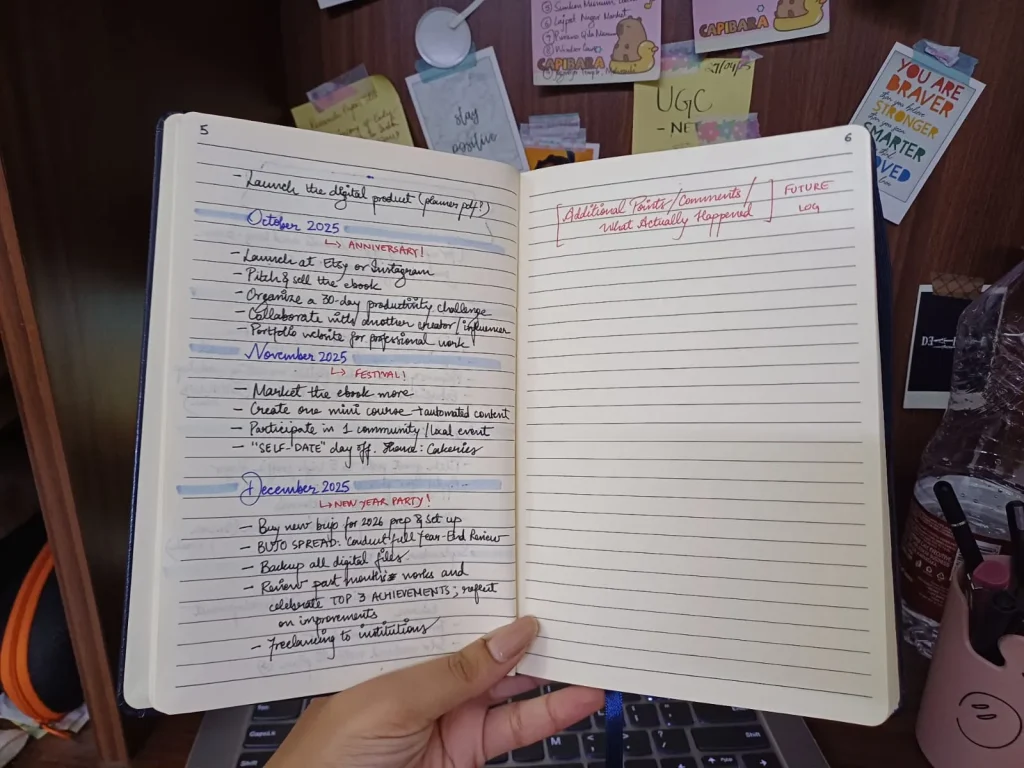 CAPIBARA
CAPIBARA
7/09/25
UGC
- NET
stay
positive
YOU ARE
BRAVER
than you believe
STRONGER
than you seem
SMARTER
5
- Launch the digital product (planner pdf?)
October 2025
↳ ANNIVERSARY!
- Launch at Etsy or Instagram
- Pitch & sell the ebook
- Organize a 30-day productivity challenge
- Collaborate with another creator/influencer
- Portfolio website for professional work
November 2025
↳ FESTIVAL!
- Market the ebook more
- Create one mini course → automated content
- Participate in 1 community/local event
- "SELF-DATE" day off. : Cakeries
December 2025
↳ NEW YEAR PARTY!
- Buy new bujo for 2026 prep & set up
- BUJO SPREAD: Conduct full Year-End Review
- Backup all digital files
- Review past month's works and
celebrate TOP 3 ACHIEVEMENTS; reflect
on improvements
- Freelancing to institutions
6
[Additional Points/Comments/
What Actually Happened]
FUTURE
LOG